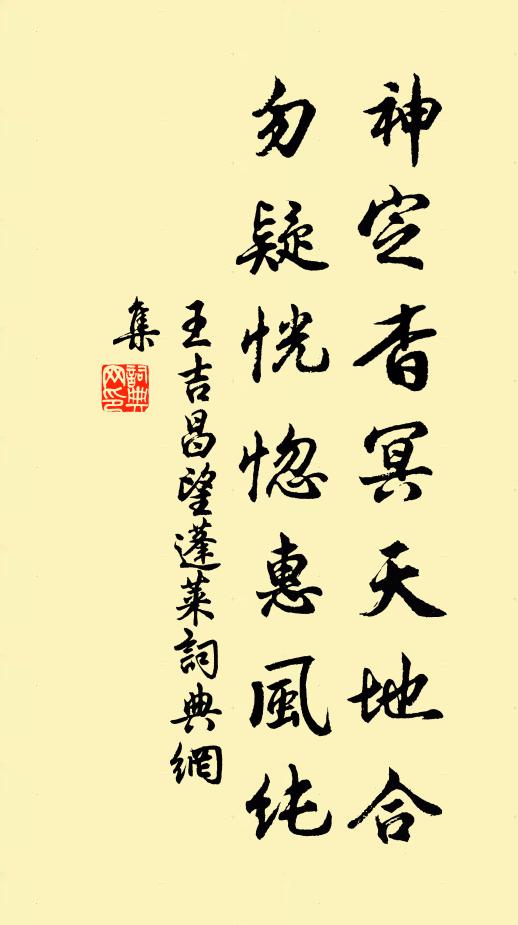 神定杳冥天地合
勿疑恍惚惠風純
王吉昌望蓬萊詞典網
集
詞典網印